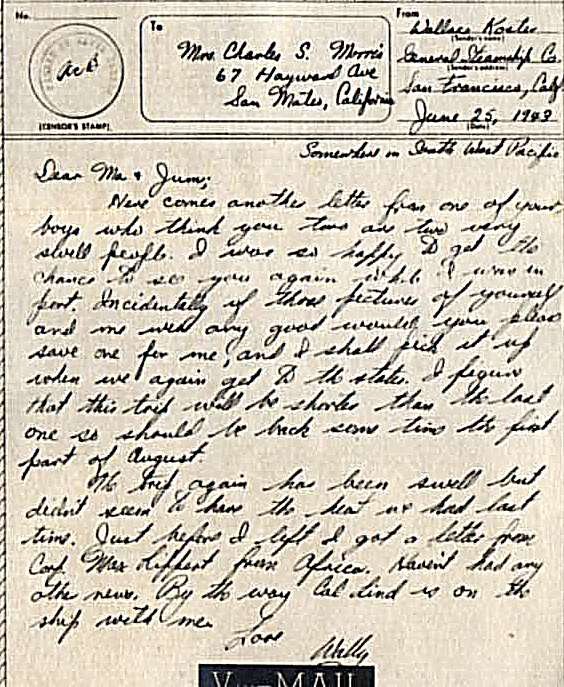 No.
To
From
Mrs. Charles S. Morris
67 Hayward Ave
San Mateo, California
Wallace
(Sender's name)
General Steamship Co.
(Sender's address)
San Francisco, Calif.
June 25, 1943
(Date)
(CENSOR'S STAMP)
Somewhere in South West Pacific
Dear Ma & Jim;
Here comes another letter from one of your
boys who think you two are two very
swell people. I was so happy to get the
chance to see you again while I was in
port. Incidentally if those pictures of yourself
and me were any good would you please
save one for me, and I shall pick it up
when we again get to the states. I figure
that this trip will be shorter than the last
one so should be back some time the first
part of August.
The trip again has been swell but
didn't seem to have the heat we had last
time. Just before I left I got a letter from
Corp. Max Lippert from Africa. Haven't had any
other news. By the way Cal Lind is on the
ship with me.
Love
Wally
V MAIL